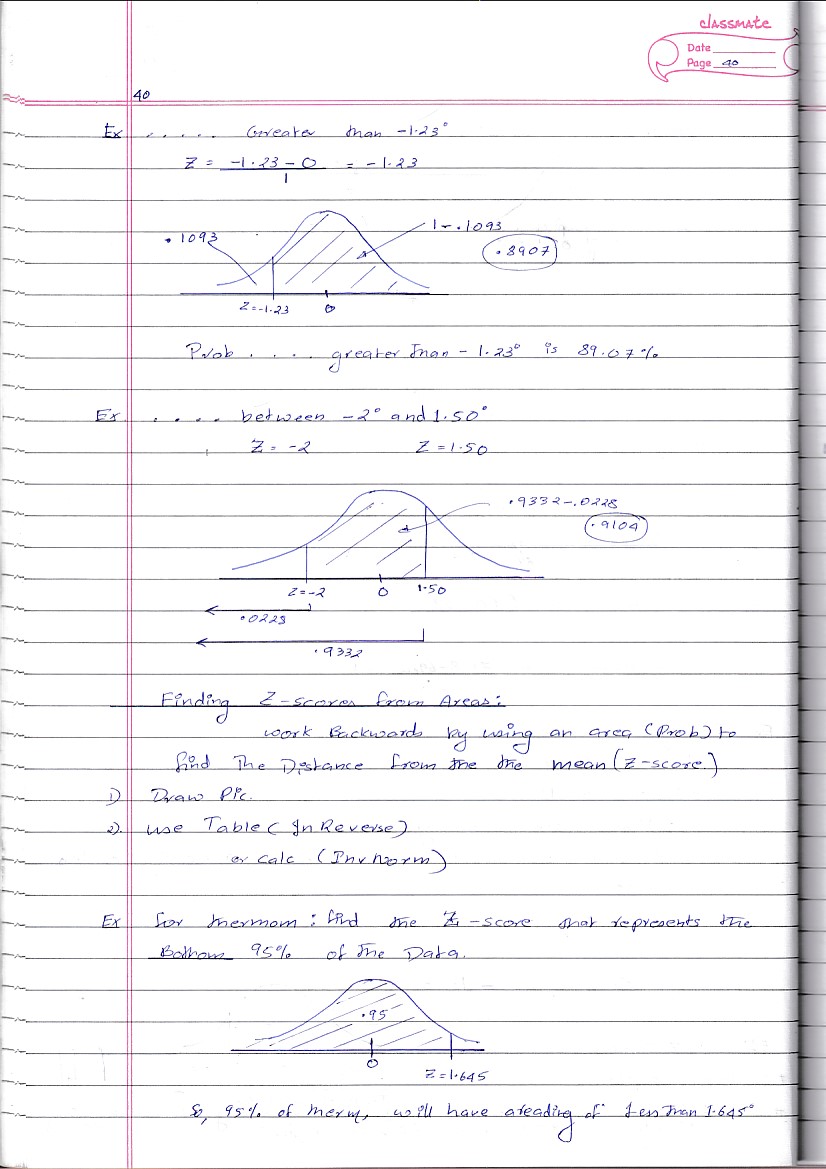 classmate
Date
Page 40
40
Ex ..... Greater than -1.23°
Z = -1.23 - 0 = -1.23
1
.1093
1 - .1093
.8907
Z=-1.23 0
Prob .... greater than -1.23° is 89.07%
Ex .... between -2° and 1.50°
Z = -2 Z = 1.50
.9332-.0228
.9104
Z=-2 0 1.50
.0228
.9332
Finding Z-scores from Areas:
work Backwards by using an area (Prob) to
find The Distance from the the mean (Z-score.)
1) Draw Pic.
2). use Table (In Reverse)
or calc (Inv Norm)
Ex for thermom: find the Z-score that represents the
Bottom 95% of the Data.
.95
0
Z=1.645
So, 95% of therm, will have a reading of less than 1.645°